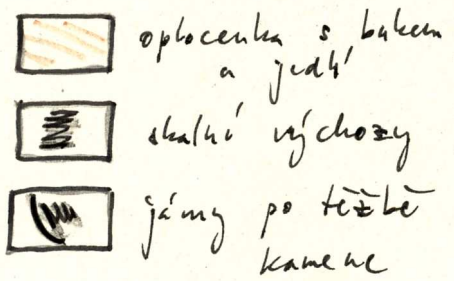 oplocenka s bukem
a jedlí
skalní výchozy
jámy po těžbě
kamene